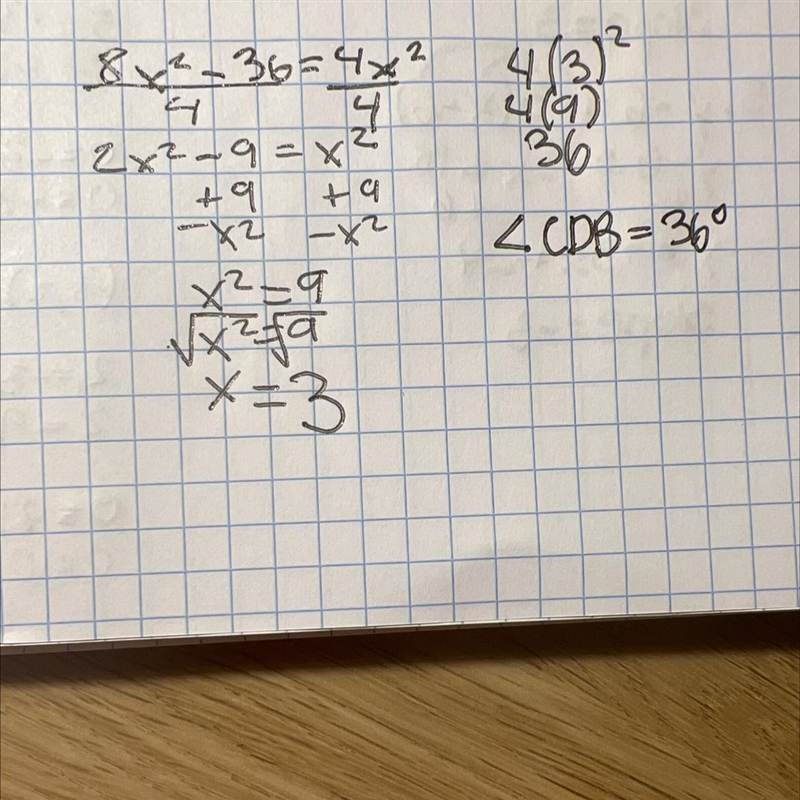 8x² - 36 = 4x²
4 4
2x² - 9 = x²
+9 +9
-x² -x²
x² = 9
√x² = √9
x = 3
4(3)²
4(9)
36
∠CDB = 36°